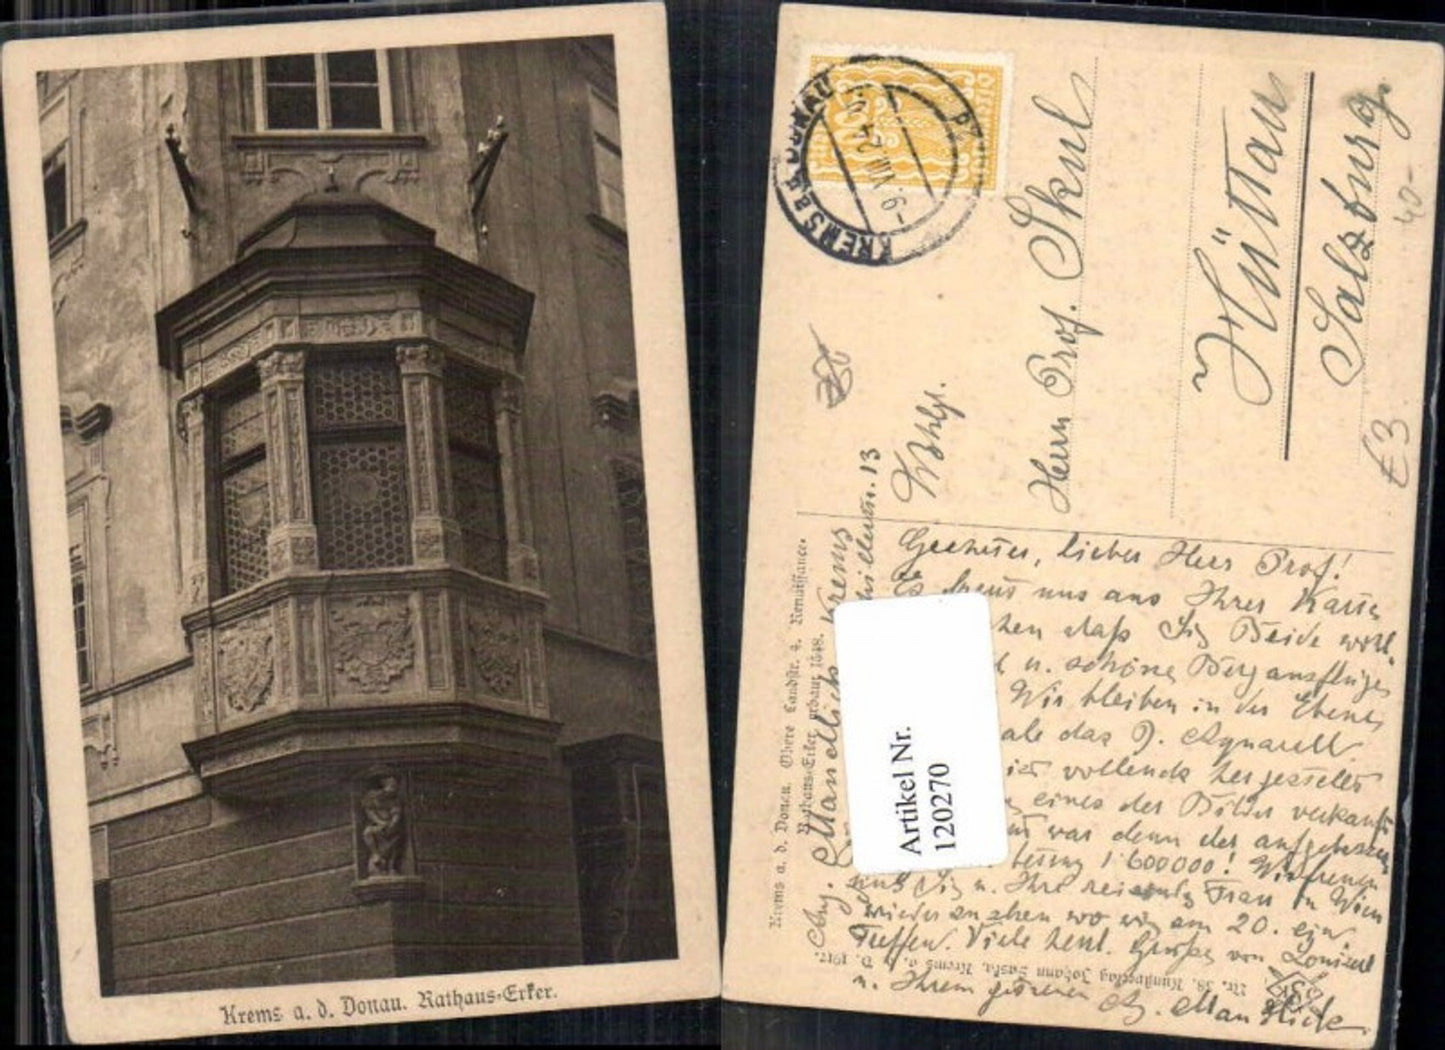 Krems a. d. Donau. Rathaus-Erker.
KREMS a. d. DONAU
-9. VIII 24
Wohlgb.
Herrn Prof. Skul
Hüttau
Salzburg.
40-
€3
Krems a. d. Donau. Obere Landstr. 4. Renaissance-
Rathaus-Erker erbaut 1548.
Nr. 38. Kunstverlag Johann Saska, Krems a. D. 1917.
Artikel Nr.
120270
Ang. Mandlick Krems
13
Geehrter, lieber Herr Prof!
Es freut uns aus Ihrer Karte
daß Sie Beide wohl
u. schöne Bergausflüge
Wir bleiben in der Ebene
das J. Aquarell
vollends hergestellt
eines der Bilder verkauft
war denn der aufgelassene
1'600000! Wir freuen
uns Sie u. Ihre reizende Frau in Wien
wieder zu sehen wo wir am 20. ein
Treffen. Viele herzl. Grüße von
u. Ihrem getreuen Ang. Mandlick